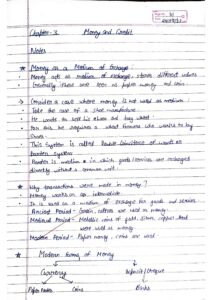 Chapter-3 Money and Credit
Notes
★ Money as a Medium of Exchange
• Money act as medium of exchange, stores different values
• Generally these are seen as paper money and coin
→ Consider a case where money is not used as medium
• Take the case of a shoe manufacture
• He wants to sell his shoes and buy wheat
• For this he requires a wheat farmer who wants to buy
shoes.
• This system is called Double Coincidence of wants or
Barter System
• Barter is system in which goods/services are exchanged
directly without a common unit.
★ Why transactions were made in money?
• Money works as an intermediate
• It is used as a medium of exchange for goods and services
Ancient Period - Grain, cattles are used as money.
Medieval Period - Metallic coins of gold, silver, copper and
were used as money
Modern Period - Paper money, coins are used
★ Modern Forms of Money
Currency Deposit/Cheque
Paper Notes Coins Banks